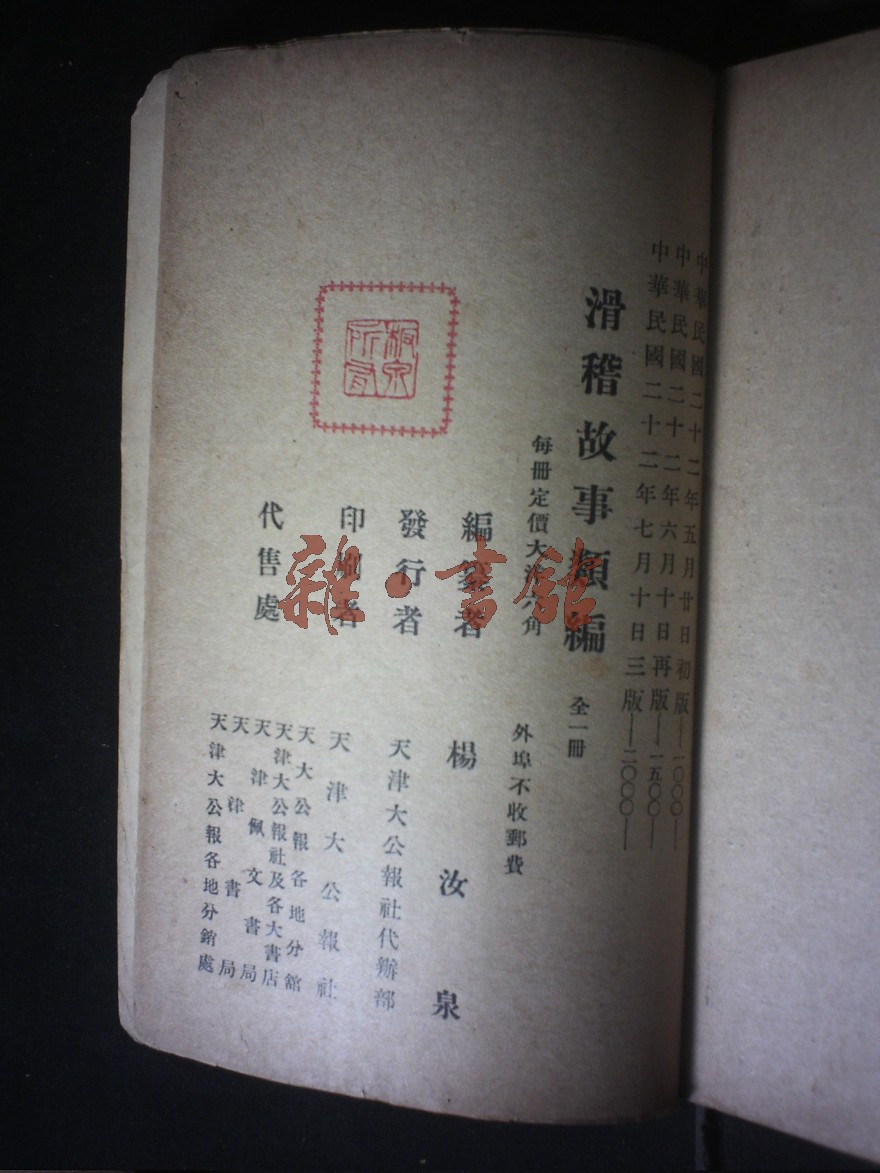 中華民國二十二年五月廿日初版—一〇〇〇—
中華民國二十二年六月十日再版—一五〇〇—
中華民國二十二年七月十日三版—二〇〇〇—
滑稽故事類編 全一冊
每冊定價大洋六角 外埠不收郵費
編纂者 楊汝泉
發行者 天津大公報社代辦部
印刷者 天津大公報社
代售處
天大公報各地分館
天津大公報社及各大書店
天津佩文書局
天津書局
天津大公報各地分銷處
雜·書館